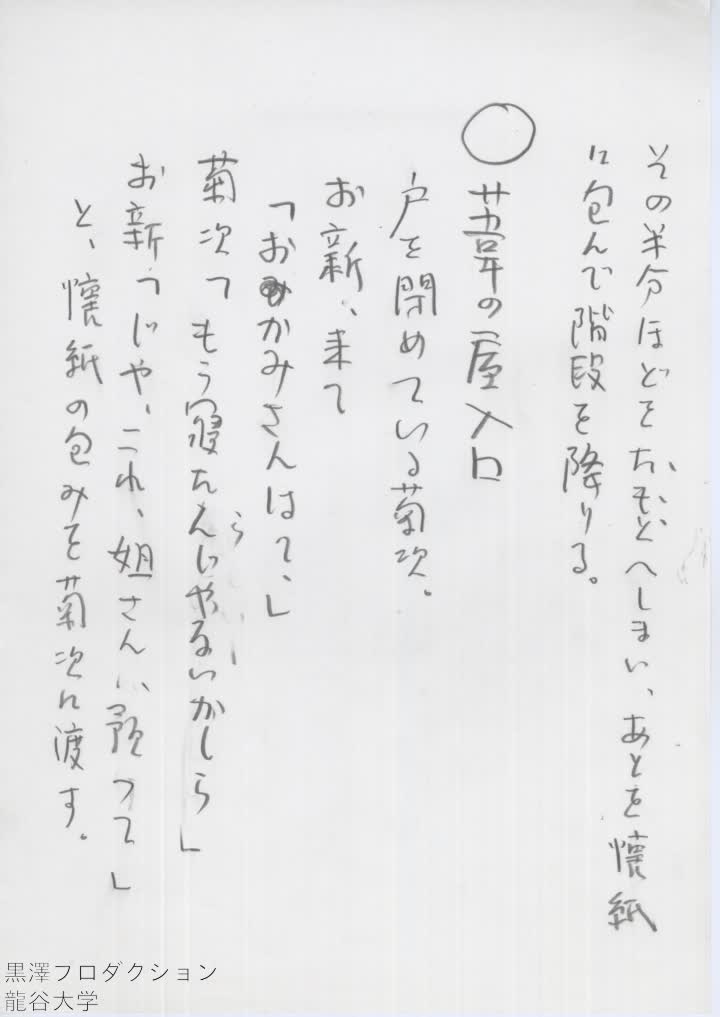 その半分ほどをたもとへしまい、あとを懐紙
に包んで階段を降りる。
○ 葦の屋入口
戸を閉めている菊次。
お新、来て
「おかみさんは？」
菊次「もう寝たんじゃないかしら」
お新「じゃ、これ、姐さん、預って」
と、懐紙の包みを菊次に渡す。
黒澤プロダクション
龍谷大学